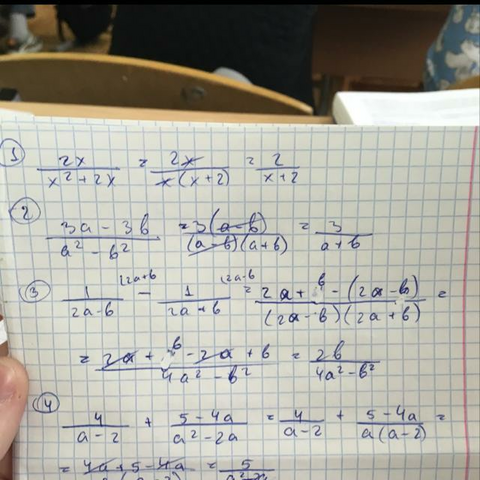 ① 2x/(x² + 2x) = 2x/(x(x+2)) = 2/(x+2)
② (3a - 3b)/(a² - b²) = 3(a-b)/((a-b)(a+b)) = 3/(a+b)
③ 1/(2a-b) |2a+b - 1/(2a+b) |2a-b = (2a+b-(2a-b))/((2a-b)(2a+b)) =
= (2a+b-2a+b)/(4a²-b²) = 2b/(4a²-b²)
④ 4/(a-2) + (5-4a)/(a²-2a) = 4/(a-2) + (5-4a)/(a(a-2)) =
= (4a+5-4a)/(a(a-2)) = 5/